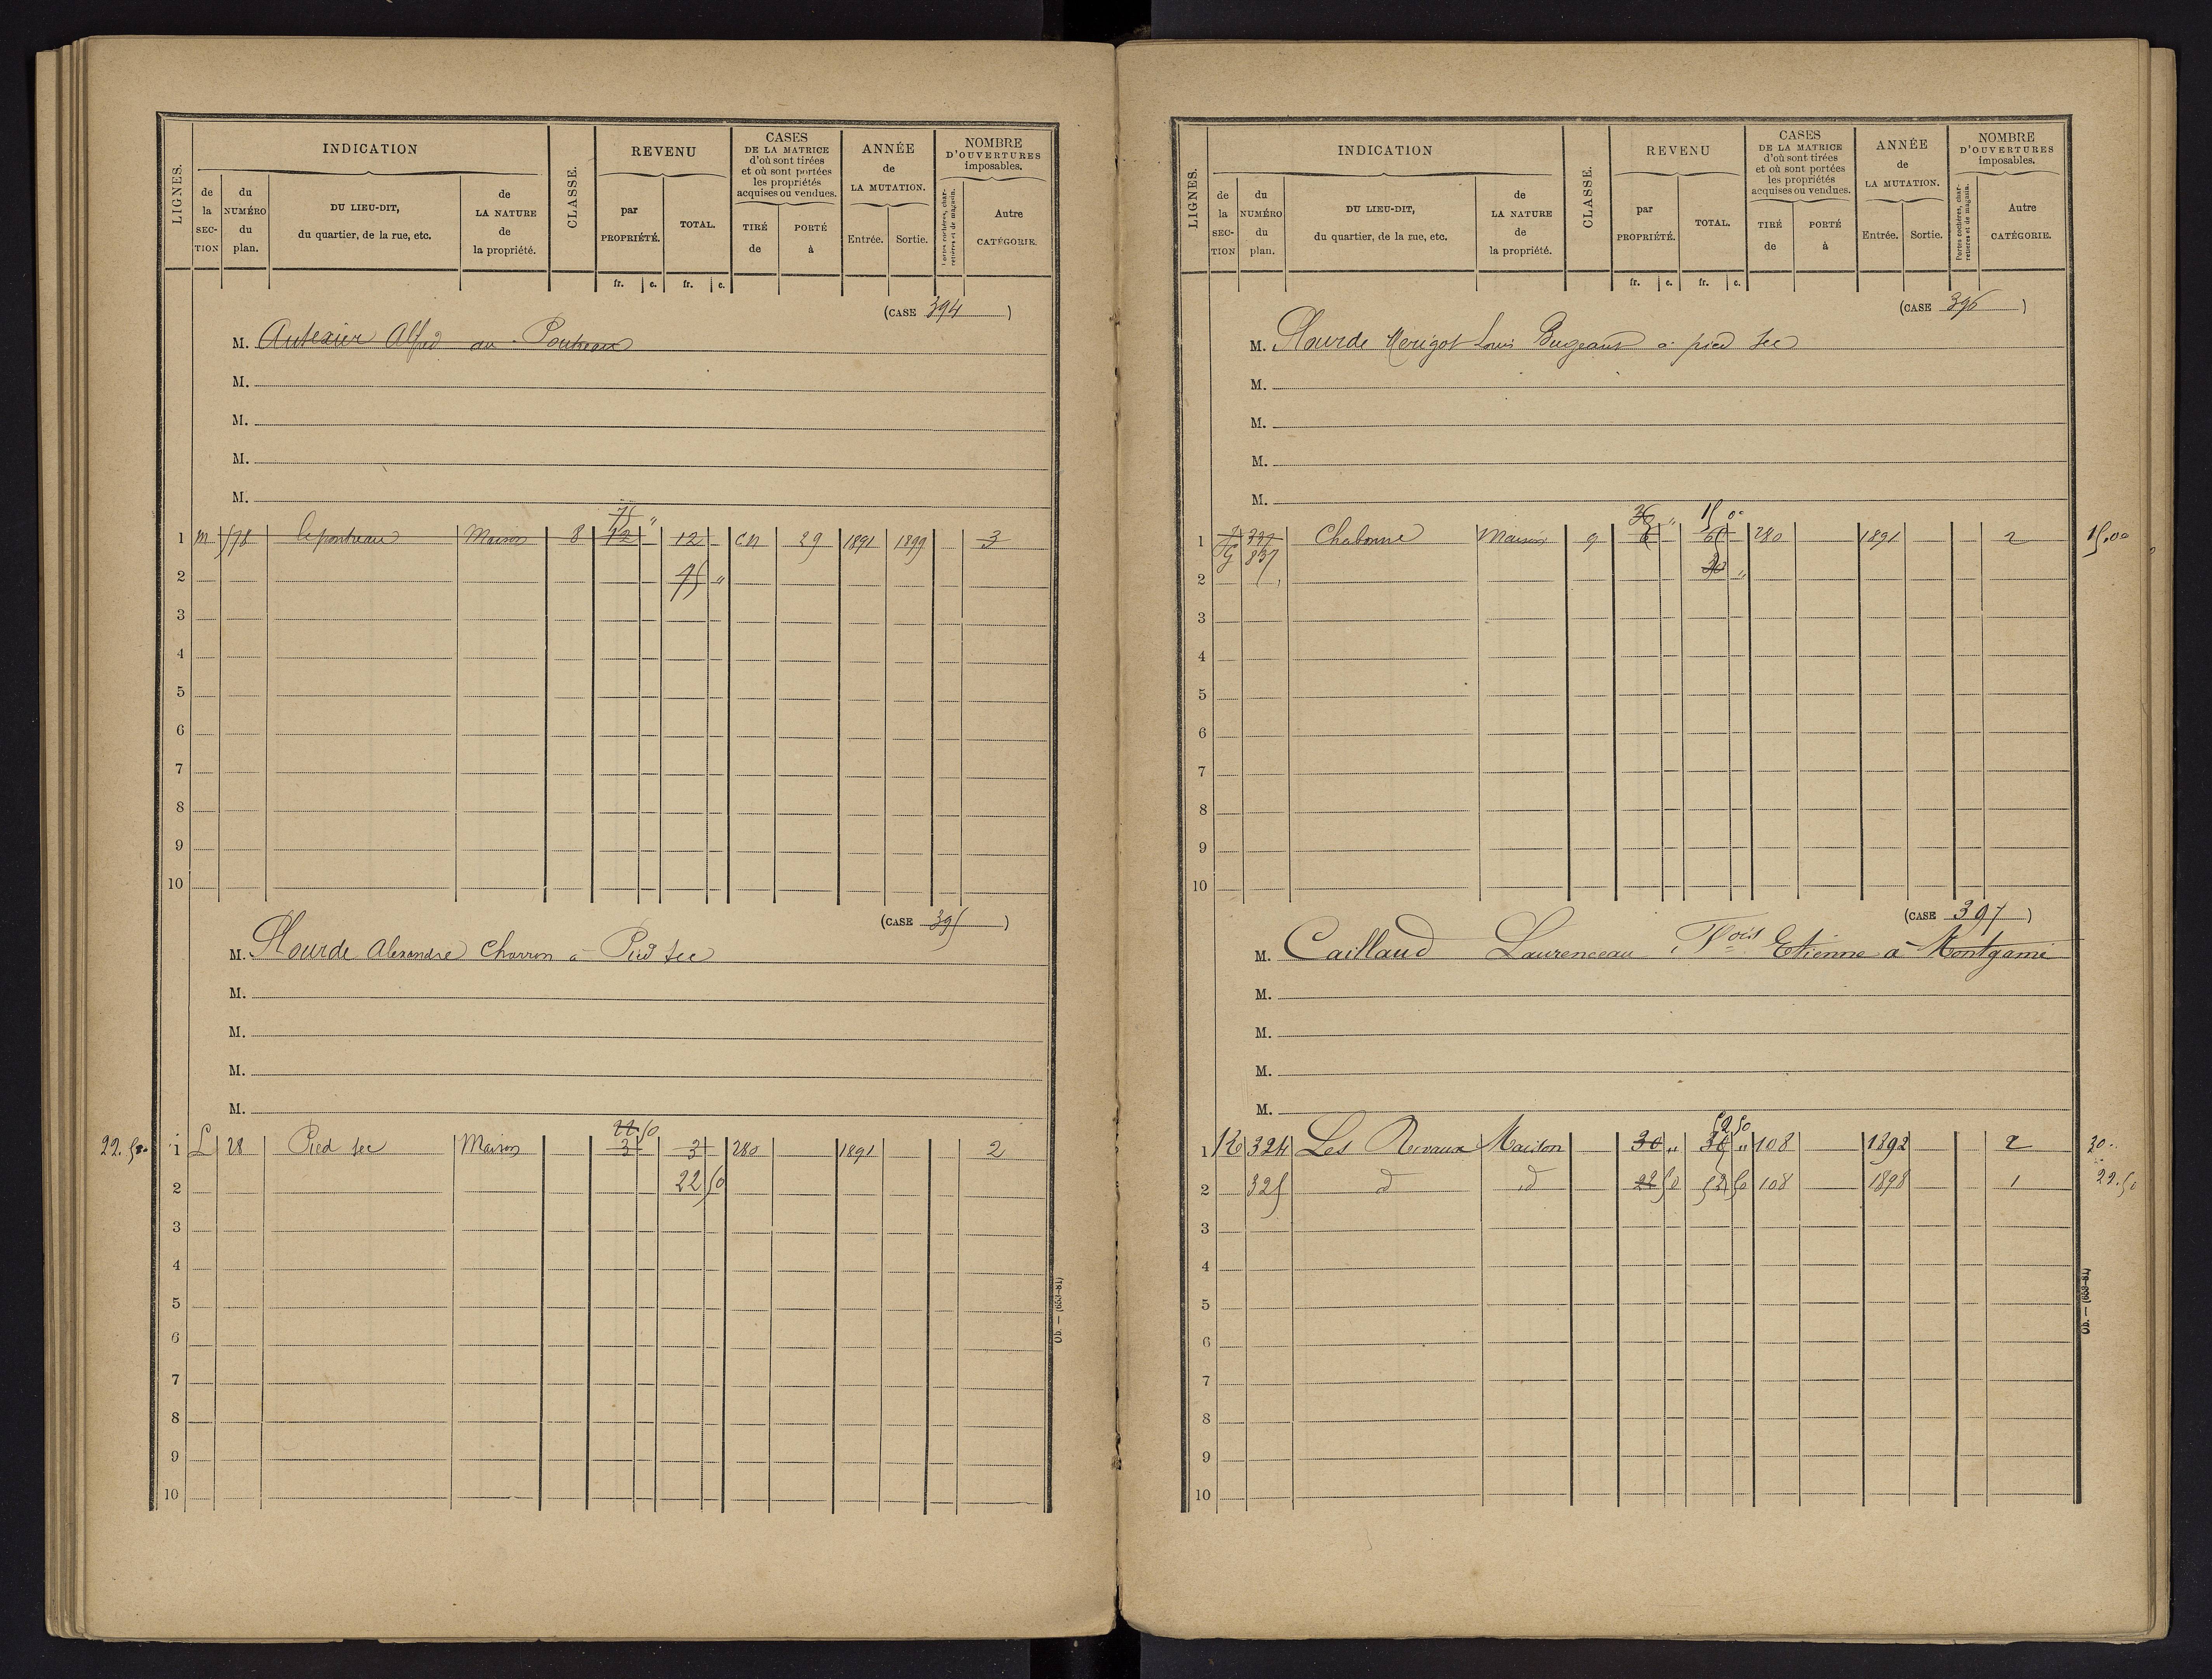 LIGNES.
INDICATION
de la SEC-TION
du NUMÉRO du plan.
DU LIEU-DIT, du quartier, de la rue, etc.
de LA NATURE de la propriété.
CLASSE.
REVENU
par PROPRIÉTÉ.
TOTAL.
fr. c. fr. c.
CASES DE LA MATRICE d'où sont tirées et où sont portées les propriétés acquises ou vendues.
TIRÉ de
PORTÉ à
ANNÉE de LA MUTATION.
Entrée. Sortie.
NOMBRE D'OUVERTURES imposables.
Portes cochères, char-retières et de magasin.
Autre CATÉGORIE.
(CASE 394)
M. Autexier Alfred au Pontreau
M.
M.
M.
M.
75 "
1 m 598 le pontreau Maison 8 12 12 CN 29 1891 1899 3
2 75 "
3
4
5
6
7
8
9
10
(CASE 395)
M. Plourde Alexandre Charron à Pied sec
M.
M.
M.
M.
22 50
22.50 1 L 28 Pied sec Maison 3 3 280 1891 2
2 22 50
3
4
5
6
7
8
9
10
Ob. — (653-81)
LIGNES.
INDICATION
de la SEC-TION
du NUMÉRO du plan.
DU LIEU-DIT, du quartier, de la rue, etc.
de LA NATURE de la propriété.
CLASSE.
REVENU
par PROPRIÉTÉ.
TOTAL.
fr. c. fr. c.
CASES DE LA MATRICE d'où sont tirées et où sont portées les propriétés acquises ou vendues.
TIRÉ de
PORTÉ à
ANNÉE de LA MUTATION.
Entrée. Sortie.
NOMBRE D'OUVERTURES imposables.
Portes cochères, char-retières et de magasin.
Autre CATÉGORIE.
(CASE 396)
M. Plourde Merigot Louis Bugeant à pied sec
M.
M.
M.
M.
30 " 15 00
1 337 Chabonne Maison 9 6 280 1891 2 15,00
G 837
2 30 "
3
4
5
6
7
8
9
10
(CASE 397)
M. Caillaud Laurenceau Fois Etienne à Montgamé
M.
M.
M.
M.
52 50
1 K 324 Les Nervaux Maison 30 " 30 " 108 1892 2 30..
2 325 d d 22 50 52 50 108 1898 1 22.50
3
4
5
6
7
8
9
10
Ob. — (653-81)